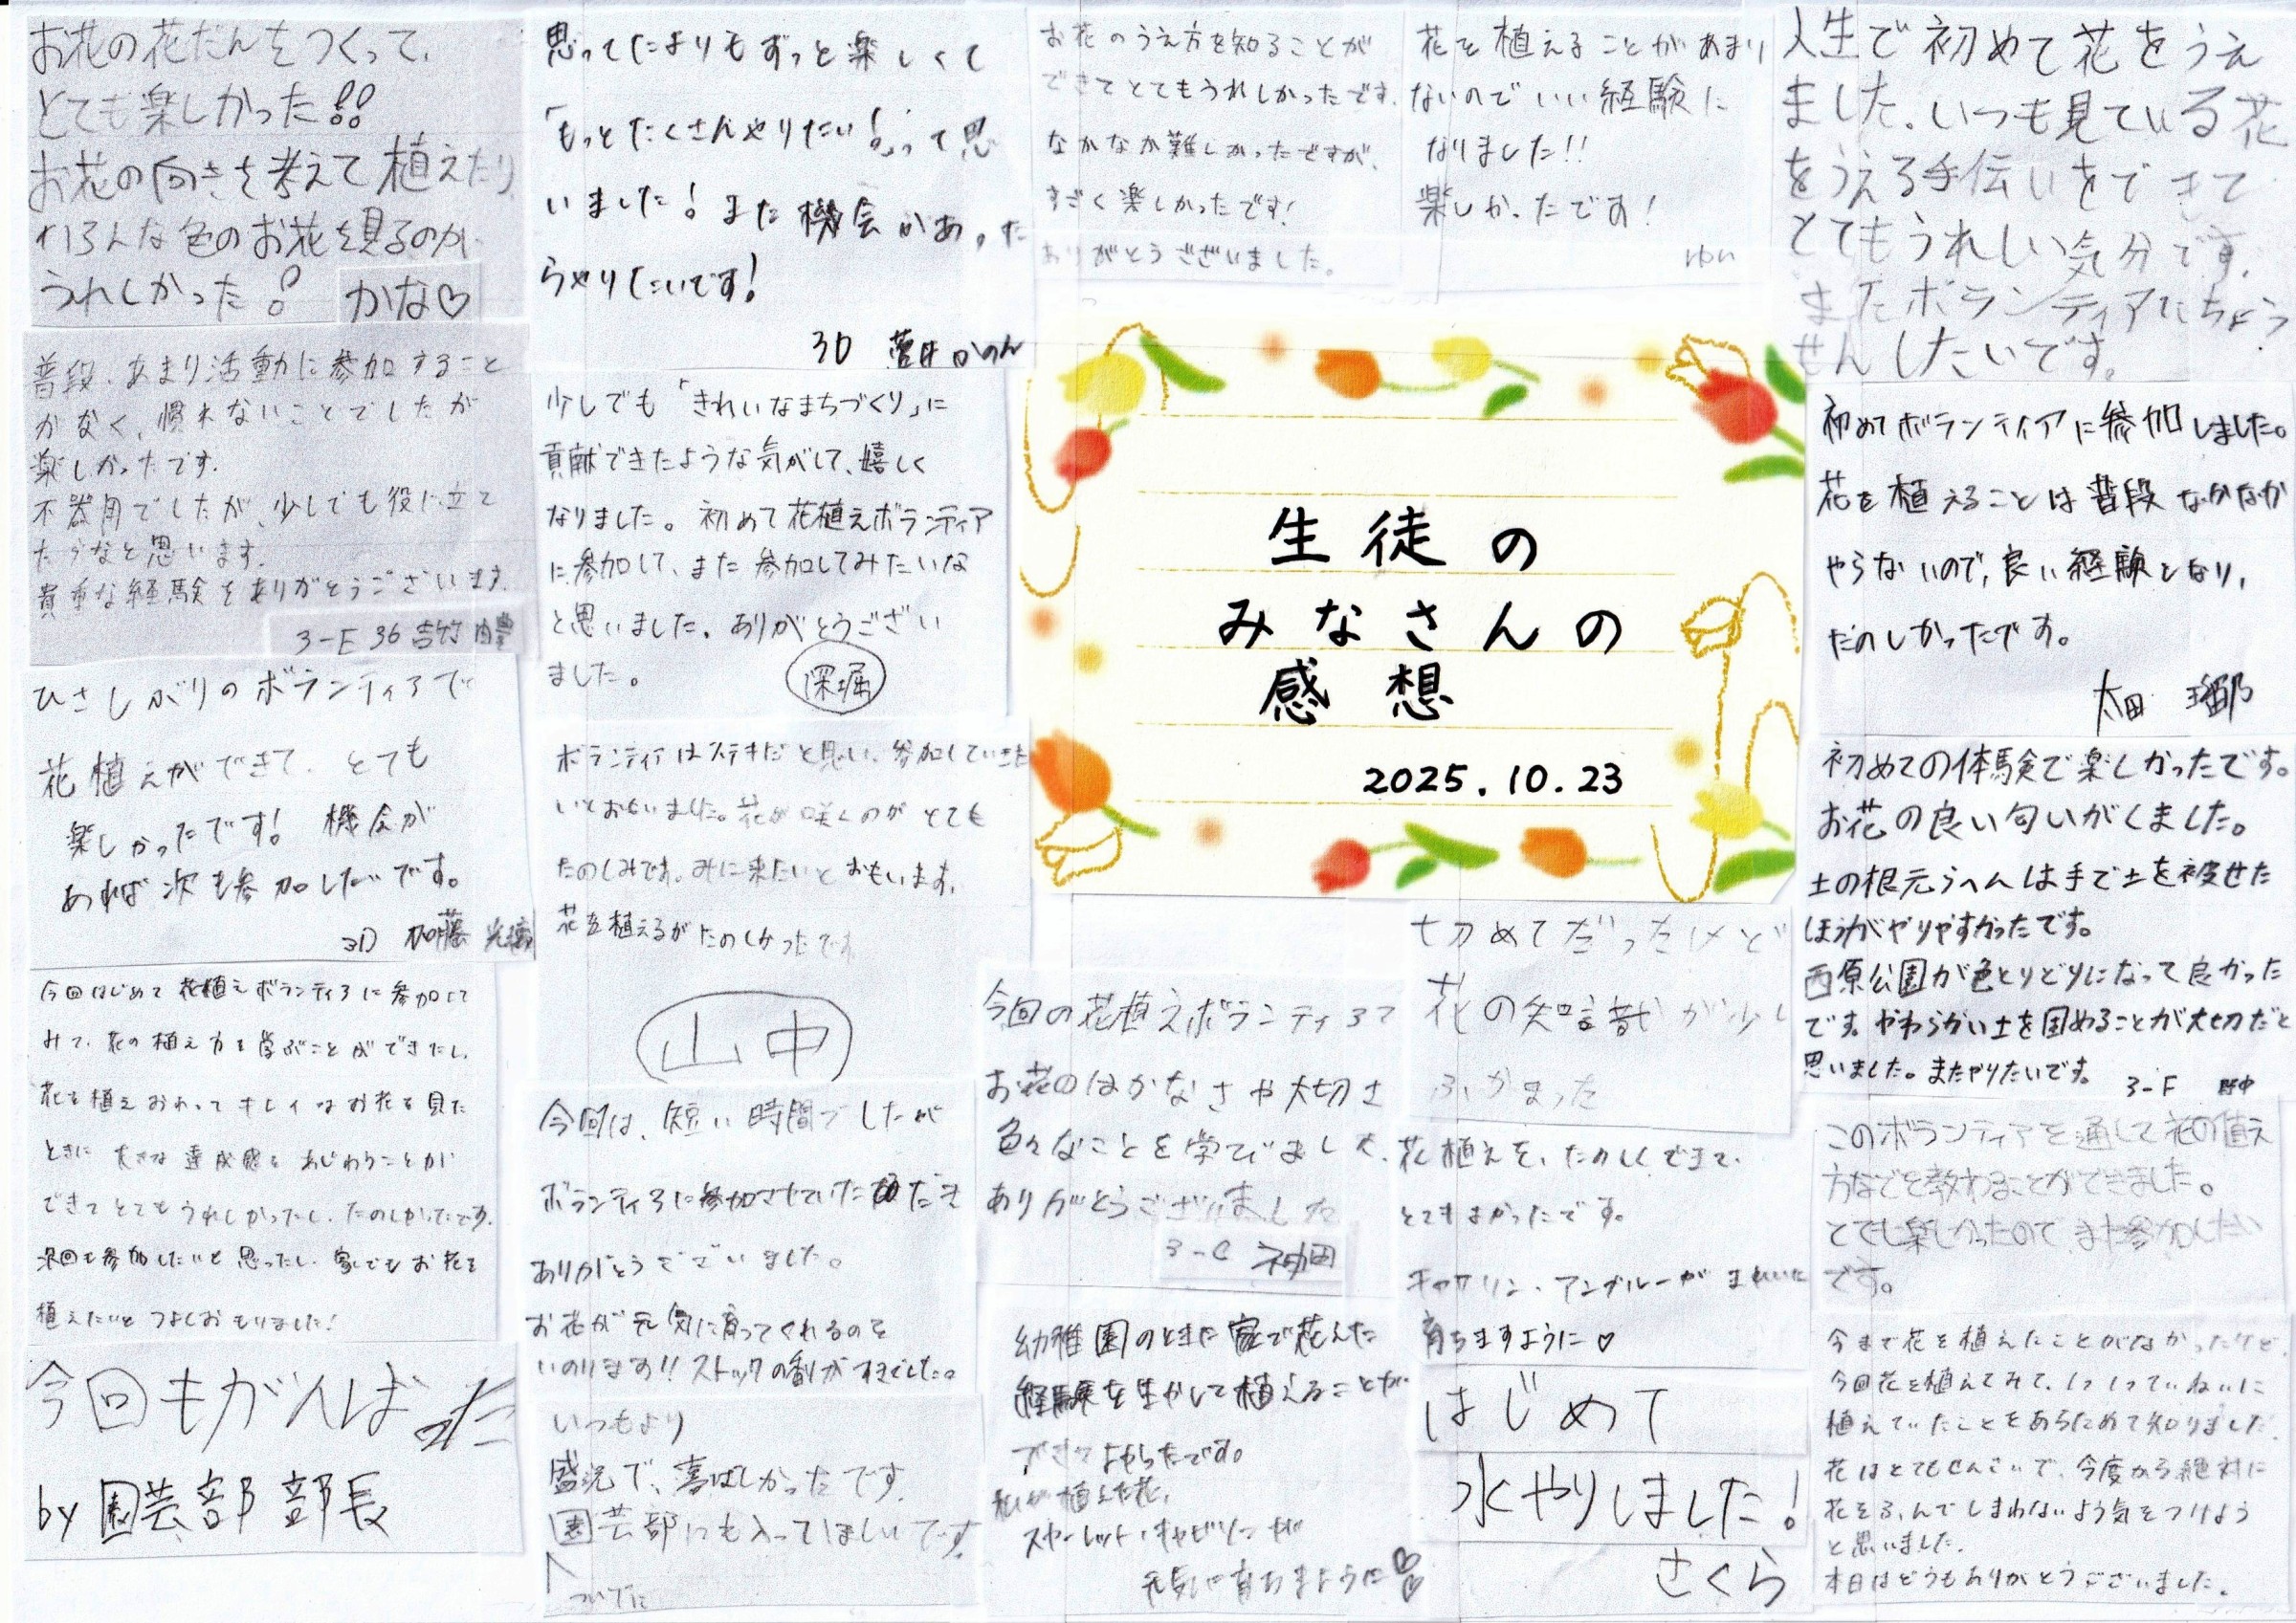 お花の花だんをつくって、
とても楽しかった!!
お花の向きを考えて植えたり
いろんな色のお花を見るのが
うれしかった!
かな♡
普段、あまり活動に参加すること
がなく、慣れないことでしたが
楽しかったです。
不器用でしたが、少しでも役に立て
たらなと思います。
貴重な経験をありがとうございます。
3-F 36 吉竹
ひさしぶりのボランティアで
花植えができて、とても
楽しかったです! 機会が
あれば次も参加したいです。
3D 加藤
今回はじめて花植えボランティアに参加して
みて、花の植え方を学ぶことができたし、
花を植えおわってキレイなお花を見た
ときに大きな達成感をあじわうことが
できてとてもうれしかったし、たのしかったです。
次回も参加したいと思ったし、家でもお花を
植えたいとつよくおもいました!
今回もがんばった
by 園芸部 部長
思ってたよりもずっと楽しくて
「もっとたくさんやりたい!」って思
いました! また機会があった
らやりたいです!
3D かのん
少しでも「きれいなまちづくり」に
貢献できたような気がして、嬉しく
なりました。初めて花植えボランティア
に参加して、また参加してみたいな
と思いました。ありがとうござい
ました。
深堀
ボランティアはステキだと思い、参加していきた
いとおもいました。花が咲くのがとても
たのしみです。みに来たいとおもいます。
花を植えるがたのしかったです
山中
今回は、短い時間でしたが
ボランティアに参加させていただき
ありがとうございました。
お花が元気に育ってくれるのを
いのります!! ストックの香りがすきでした。
いつもより
盛況で、喜ばしかったです。
園芸部にも入ってほしいです。
ついでに
お花のうえ方を知ることが
できてとてもうれしかったです。
なかなか難しかったですが、
すごく楽しかったです!
ありがとうございました。
花を植えることがあまり
ないのでいい経験に
なりました!!
楽しかったです!
ゆい
生徒の
みなさんの
感想
2025.10.23
今回の花植えボランティアで
お花のはかなさや大切さ
色々なことを学びました。
ありがとうございました
3-C 神田
幼稚園のときに家で花んた
経験を生かして植えることが
できてよかったです。
私が植えた花、
スカーレット・キャビリンが
元気に育ちますように♡
初めてだったけど
花の知識が少し
ふかまった
花植えを、たのしくできて、
とてもよかったです。
キャサリン・アングルーがきれいに
育ちますように♡
はじめて
水やりしました!
さくら
人生で初めて花をうえ
ました。いつも見ている花
をうえる手伝いをできて
とてもうれしい気分です。
またボランティアにちょう
せんしたいです。
初めてボランティアに参加しました。
花を植えることは普段なかなか
やらないので、良い経験となり、
たのしかったです。
太田
初めての体験で楽しかったです。
お花の良い匂いがしました。
土の根元らへんは手で土を被せた
ほうがやりやすかったです。
西原公園が色とりどりになって良かった
です。やわらかい土を固めることが大切だと
思いました。またやりたいです。
3-F 野中
このボランティアを通して花の植え
方などを教わることができました。
とても楽しかったので、また参加したい
です。
今まで花を植えたことがなかったけど、
今回花を植えてみて、1つ1つていねいに
植えていたことをあらためて知りました。
花はとてもせんさいで、今度から絶対に
花をふんでしまわないよう気をつけよう
と思いました。
本日はどうもありがとうございました。